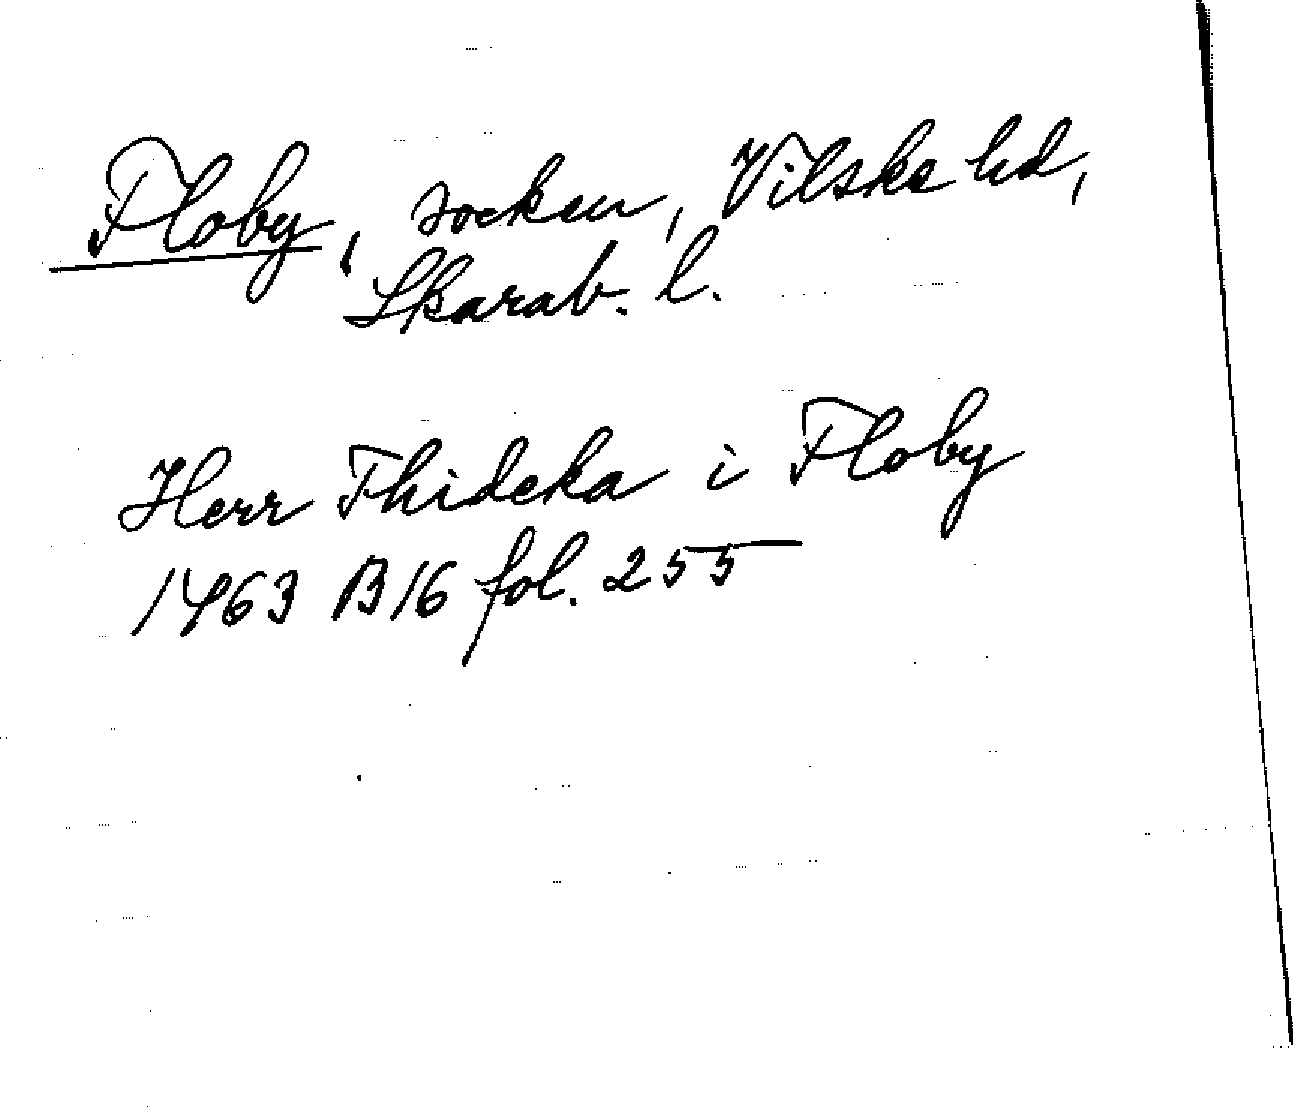 Floby, socken, Vilske hd,
Skarab. l.
Herr Thideka i Floby
1463 B16 fol. 255